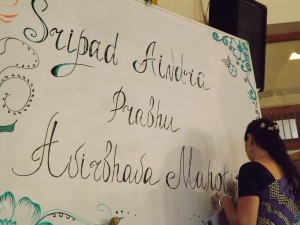 Sripad Aindra
Prabhu
Avirbhava Mahot